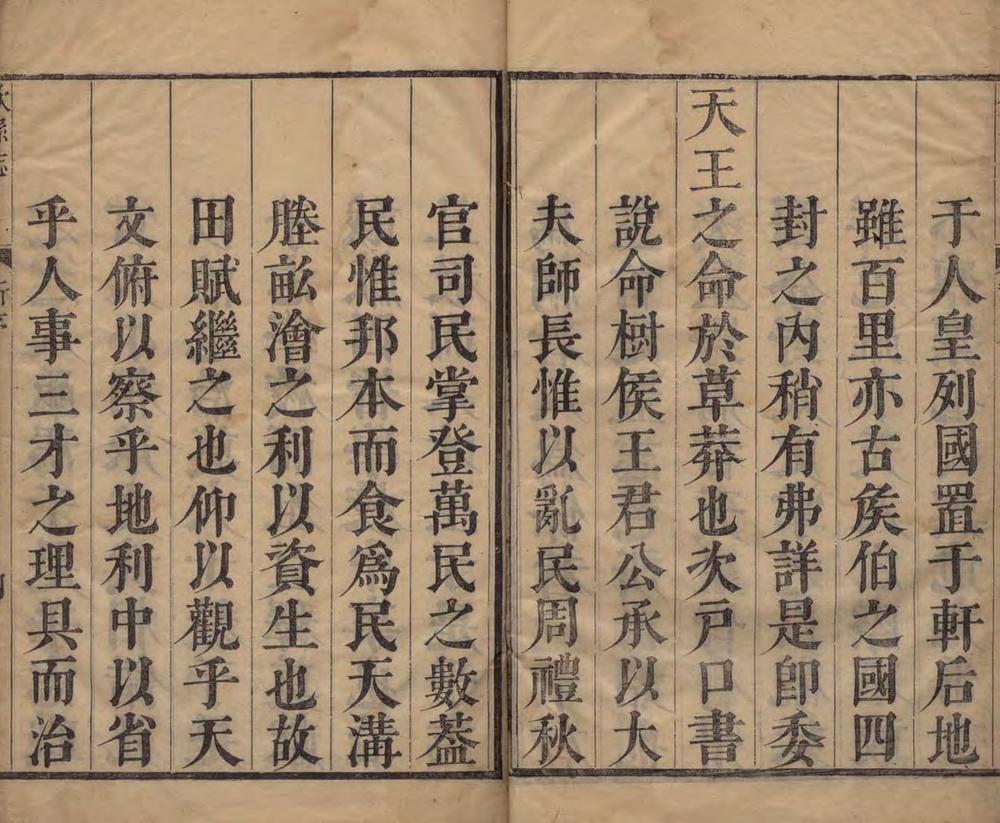 于人皇列國置于軒后地
雖百里亦古矦伯之國四
封之内稍有弗詳是卽委
天王之命於草莽也次戸口書
說命樹矦王君公承以大
夫師長惟以亂民周禮秋
官司民掌登萬民之數葢
民惟邦本而食爲民天溝
塍畝澮之利以資生也故
田賦繼之也仰以觀乎天
文俯以察乎地利中以省
乎人事三才之理具而治